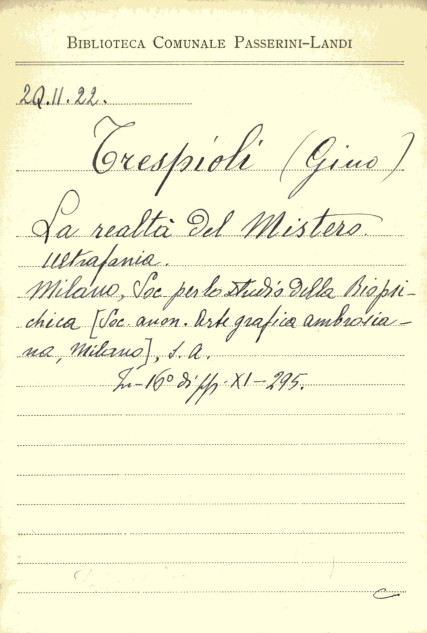 BIBLIOTECA COMUNALE PASSERINI-LANDI
2Q.II.22.
Trespioli (Gino)
La realtà del Mistero.
Ultrafania.
Milano, Soc. per lo studio della Biopsi-
chica [Soc. anon. Arte grafica ambrosia-
na, Milano], s. a.
In-16° di pp. XI-295.
C